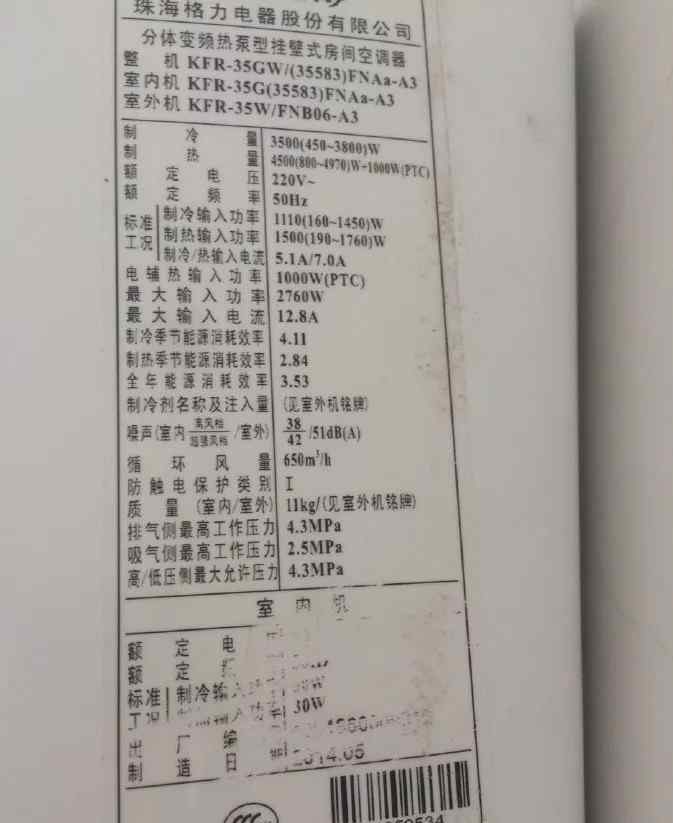 珠海格力电器股份有限公司
分体变频热泵型挂壁式房间空调器
整 机 KFR-35GW/(35583)FNAa-A3
室内机 KFR-35G(35583)FNAa-A3
室外机 KFR-35W/FNB06-A3
制 冷 量 3500(450~3800)W
制 热 量 4500(800~4970)W+1000W(PTC)
额 定 电 压 220V~
额 定 频 率 50Hz
标准工况 制冷输入功率 1110(160~1450)W
制热输入功率 1500(190~1760)W
制冷/热输入电流 5.1A/7.0A
电辅热输入功率 1000W(PTC)
最大输入功率 2760W
最大输入电流 12.8A
制冷季节能源消耗效率 4.11
制热季节能源消耗效率 2.84
全年能源消耗效率 3.53
制冷剂名称及注入量 (见室外机铭牌)
噪声(室内 高风档/超强风档 /室外) 38/42 /51dB(A)
循 环 风 量 650m³/h
防触电保护类别 I
质 量 (室内/室外) 11kg/(见室外机铭牌)
排气侧最高工作压力 4.3MPa
吸气侧最高工作压力 2.5MPa
高/低压侧最大允许压力 4.3MPa
室 内 机
额 定 电
额 定
标准 制冷输
工况 30W
出 厂 编
制 造 日 2014.05